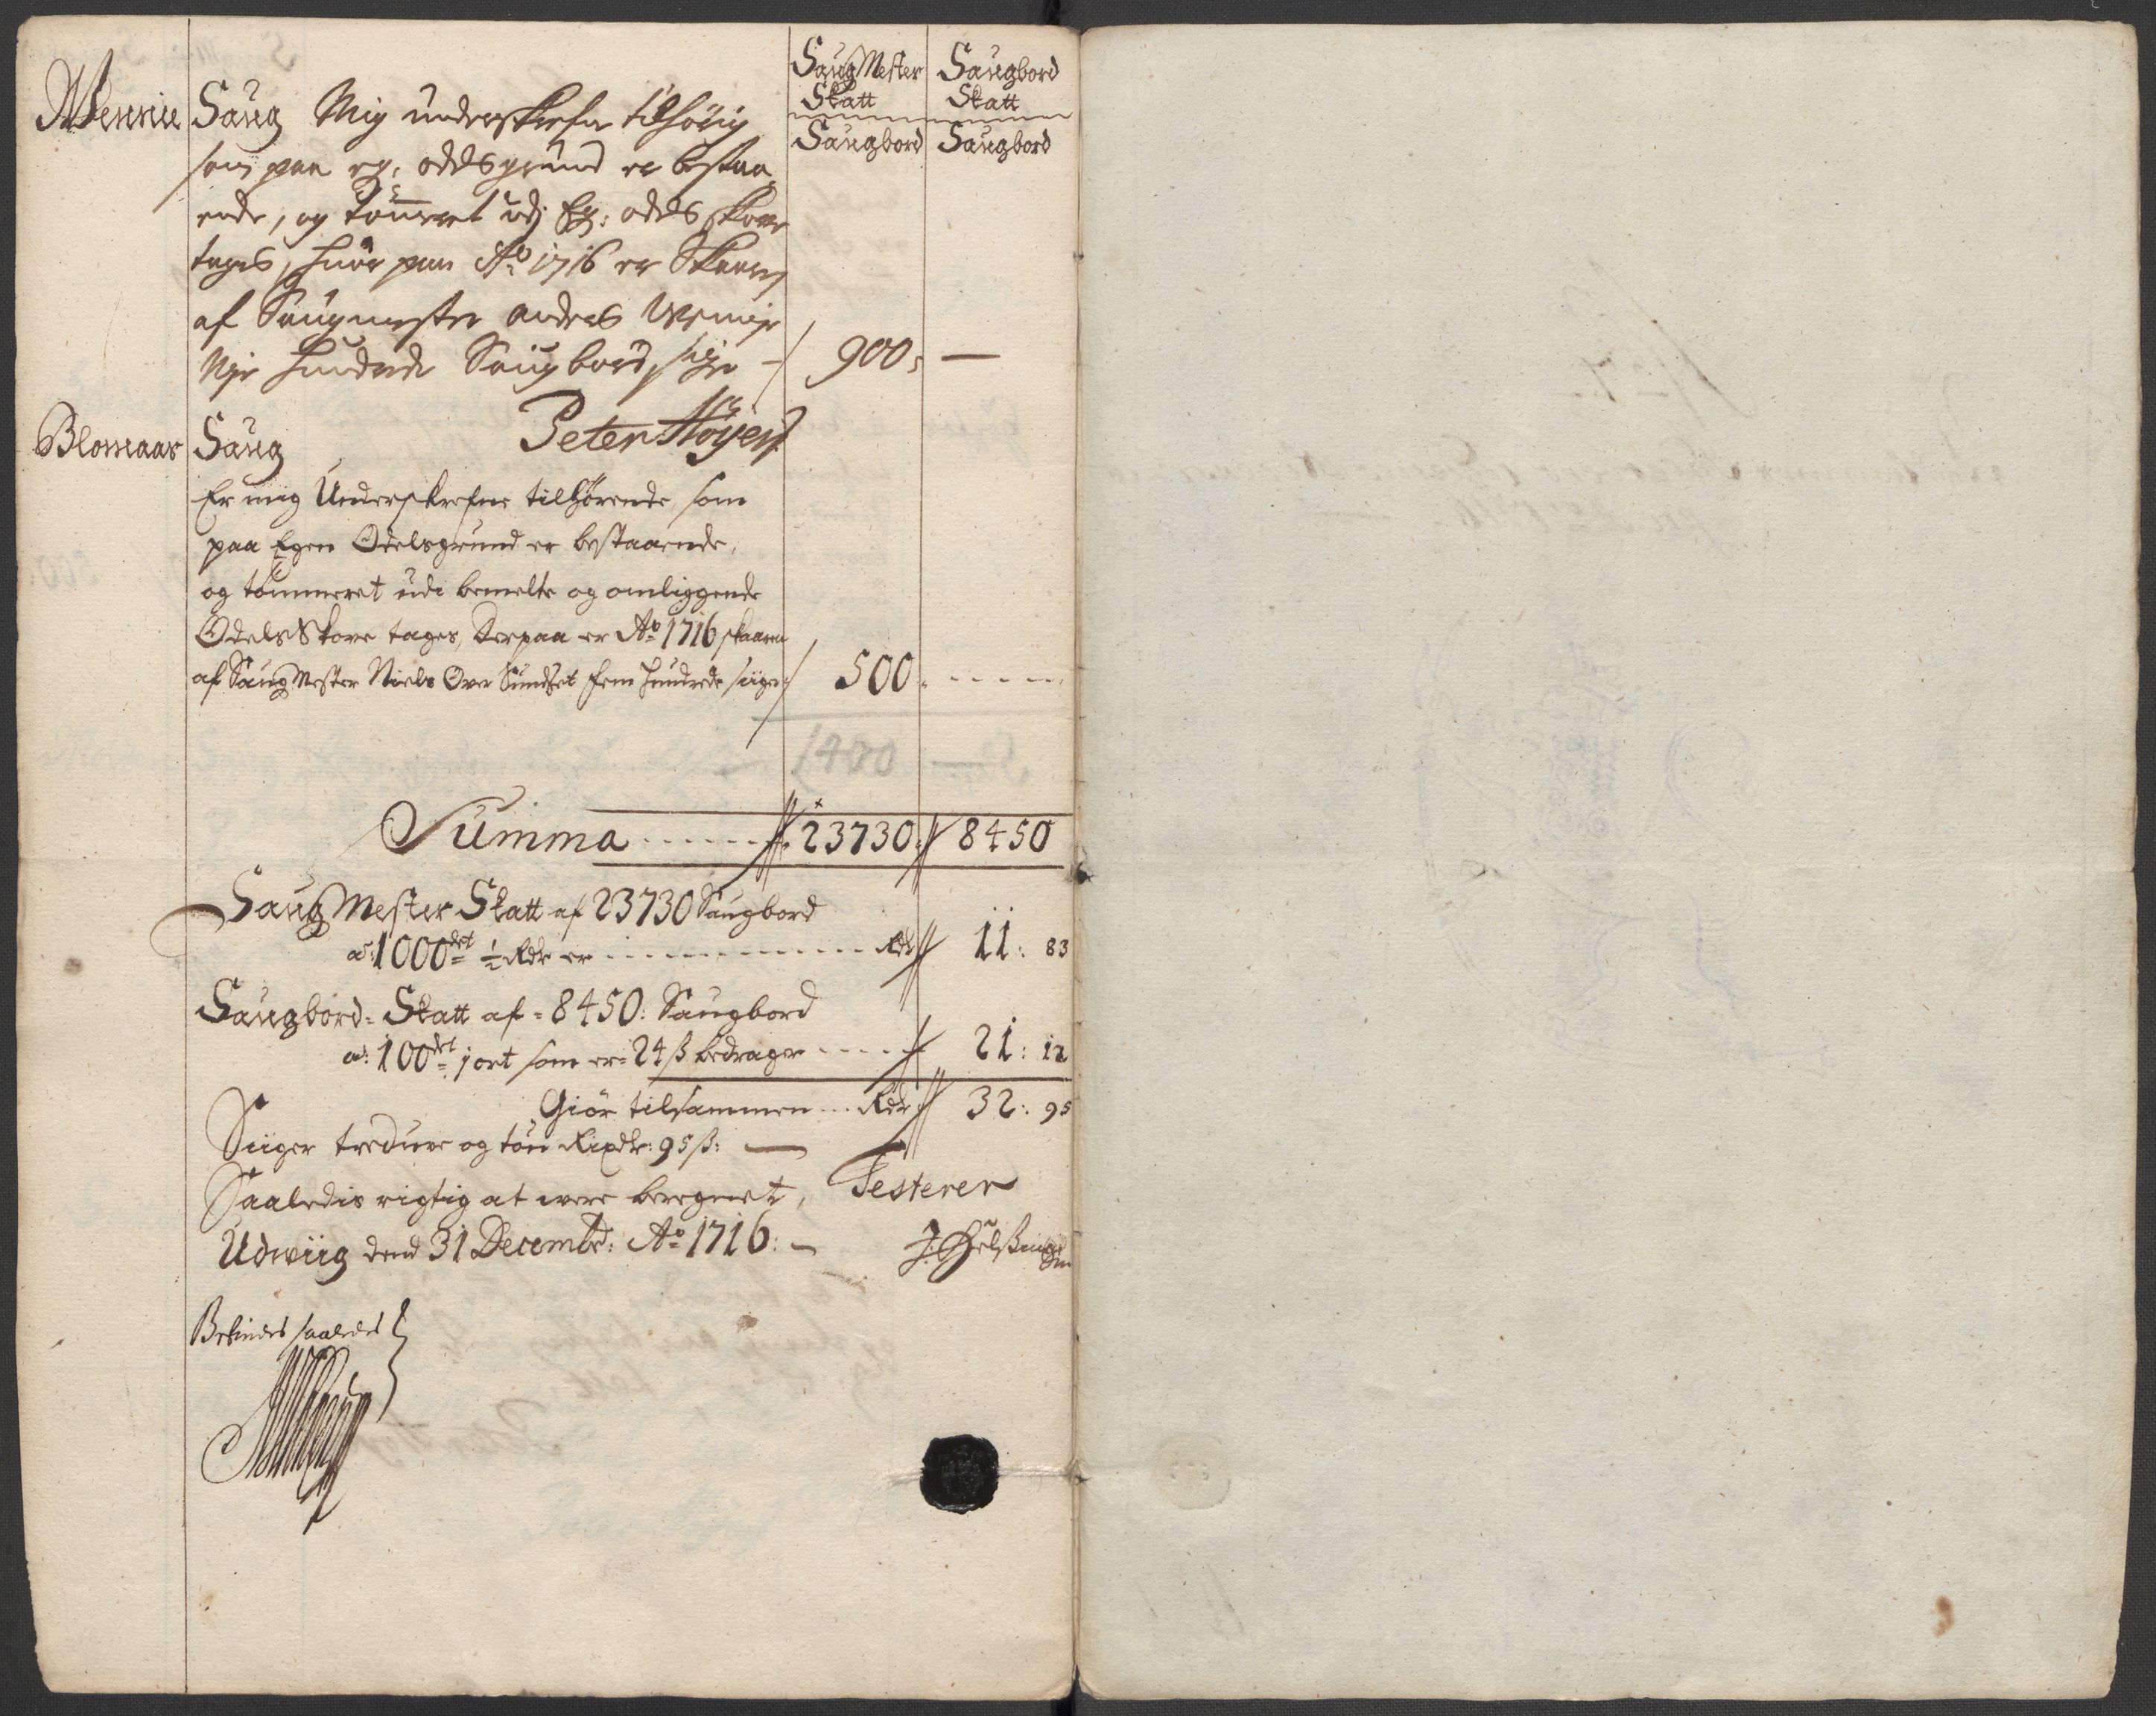 Saug Mester Skatt
Saugbord Skatt
Saugbord
Saugbord
Wennie Saug Mig underskrefn tilhörig
som paa eg: oddsgrund er bestaa¬
ende, og Tömeret udj Eg: odds skove
tages, huor paa Aō 1716 er Skaaren
af Saugmester Anders Wennie
Nje hundrede Saugbord, sige - 900: —
Peter Höyer
Blomaas Saug
Er mig Underskrefne tilhörende, som
paa Egen Odelsgrund er bestaaende,
og tömmeret udi bemelte og omliggende
Odels Skove tages, Derpaa er Aō 1716 skaaren
af Saug Mester Niels Over Sundset fem hundrede siiger 500
1400
Summa 23730: 8450
Saug Mester Skatt af 23730 Saugbord
a: 1000det ½ Rdr er Rdr 11: 83
Saugbord= Skatt af = 8450: Saugbord
a: 100det j ort som er= 24 ß bedrager 21: 12
Giör tilsammen Rdr 32: 95
Siiger tredive og toü Rixdr: 95 ß: —
Saaledis rigtig at were beregnet, Testerer
Udwiig dend 31 Decembr: Aō 1716: —
Befindes saaledes